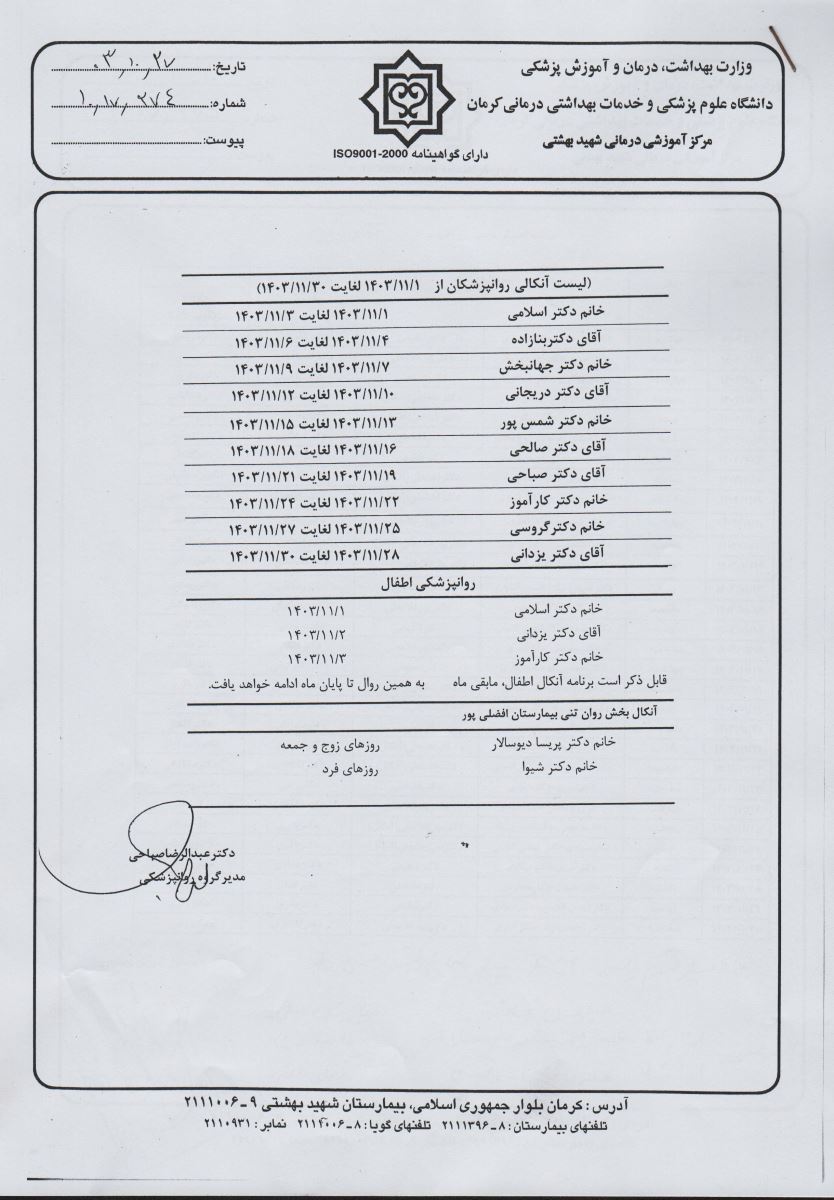 وزارت بهداشت، درمان و آموزش پزشکی
دانشگاه علوم پزشکی و خدمات بهداشتی درمانی کرمان
مرکز آموزشی درمانی شهید بهشتی
دارای گواهینامه ISO9001-2000
تاریخ: ۰۳,۱۰,۲۷
شماره: ۱۰,۱۷,۲۷۴
پیوست:
(لیست آنکالی روانپزشکان از ۱۴۰۳/۱۱/۱ لغایت ۱۴۰۳/۱۱/۳۰)
خانم دکتر اسلامی ۱۴۰۳/۱۱/۱ لغایت ۱۴۰۳/۱۱/۳
آقای دکتربنازاده ۱۴۰۳/۱۱/۴ لغایت ۱۴۰۳/۱۱/۶
خانم دکتر جهانبخش ۱۴۰۳/۱۱/۷ لغایت ۱۴۰۳/۱۱/۹
آقای دکتر دریجانی ۱۴۰۳/۱۱/۱۰ لغایت ۱۴۰۳/۱۱/۱۲
خانم دکتر شمس پور ۱۴۰۳/۱۱/۱۳ لغایت ۱۴۰۳/۱۱/۱۵
آقای دکتر صالحی ۱۴۰۳/۱۱/۱۶ لغایت ۱۴۰۳/۱۱/۱۸
آقای دکتر صباحی ۱۴۰۳/۱۱/۱۹ لغایت ۱۴۰۳/۱۱/۲۱
خانم دکتر کارآموز ۱۴۰۳/۱۱/۲۲ لغایت ۱۴۰۳/۱۱/۲۴
خانم دکترگروسی ۱۴۰۳/۱۱/۲۵ لغایت ۱۴۰۳/۱۱/۲۷
آقای دکتر یزدانی ۱۴۰۳/۱۱/۲۸ لغایت ۱۴۰۳/۱۱/۳۰
روانپزشکی اطفال
خانم دکتر اسلامی ۱۴۰۳/۱۱/۱
آقای دکتر یزدانی ۱۴۰۳/۱۱/۲
خانم دکتر کارآموز ۱۴۰۳/۱۱/۳
قابل ذکر است برنامه آنکال اطفال، مابقی ماه به همین روال تا پایان ماه ادامه خواهد یافت.
آنکال بخش روان تنی بیمارستان افضلی پور
خانم دکتر پریسا دیوسالار روزهای زوج و جمعه
خانم دکتر شیوا روزهای فرد
دکترعبدالرضاصباحی
مدیرگروه روانپزشکی
آدرس : کرمان بلوار جمهوری اسلامی، بیمارستان شهید بهشتی ۹ ـ ۲۱۱۱۰۰۶
تلفنهای بیمارستان : ۸ ـ ۲۱۱۱۳۹۶ تلفنهای گویا : ۸ ـ ۲۱۱۴۰۰۶ نمابر : ۲۱۱۰۹۳۱